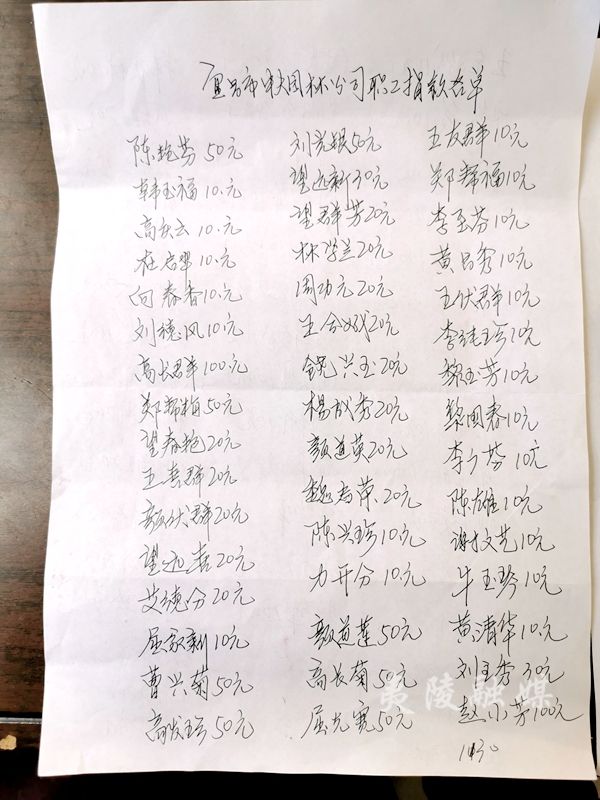 宜昌市 园林公司职工捐款名单
陈艳芬 50元
韩玉福 10元
高 云 10元
杜启翠 10元
向春香 10元
刘德凤 10元
高长群 100元
郑帮柏 50元
望春艳 20元
王春群 20元
颜伏群 20元
望 春 20元
艾德分 20元
屈家新 10元
曹兴菊 50元
高发玉 50元
刘光银 50元
望近新 30元
望群芳 20元
林学兰 20元
周功元 20元
王会 20元
兴玉 20元
杨成秀 20元
颜道英 20元
魏寿荣 20元
陈兴珍 10元
力开分 10元
颜道莲 50元
高长菊 50元
屈光宽 50元
王友群 10元
郑帮福 10元
李玉芬 10元
黄昌秀 10元
王伏群 10元
李 珍 10元
黎玉芳 10元
黎国春 10元
李 芬 10元
陈雄 10元
谢文艺 10元
牛玉珍 10元
黄清华 10元
刘玉秀 30元
赵小芳 100元
1430
夷陵融媒